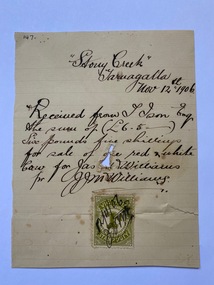 147.
"Stony Creek"
Tarnagulla
Nov 12th 1906
"Received from J Ison Esq
the sum of (£6-5-)
Six pounds five shillings
for sale of one red & white
Cow for Jas Williams
pr J J McWilliams